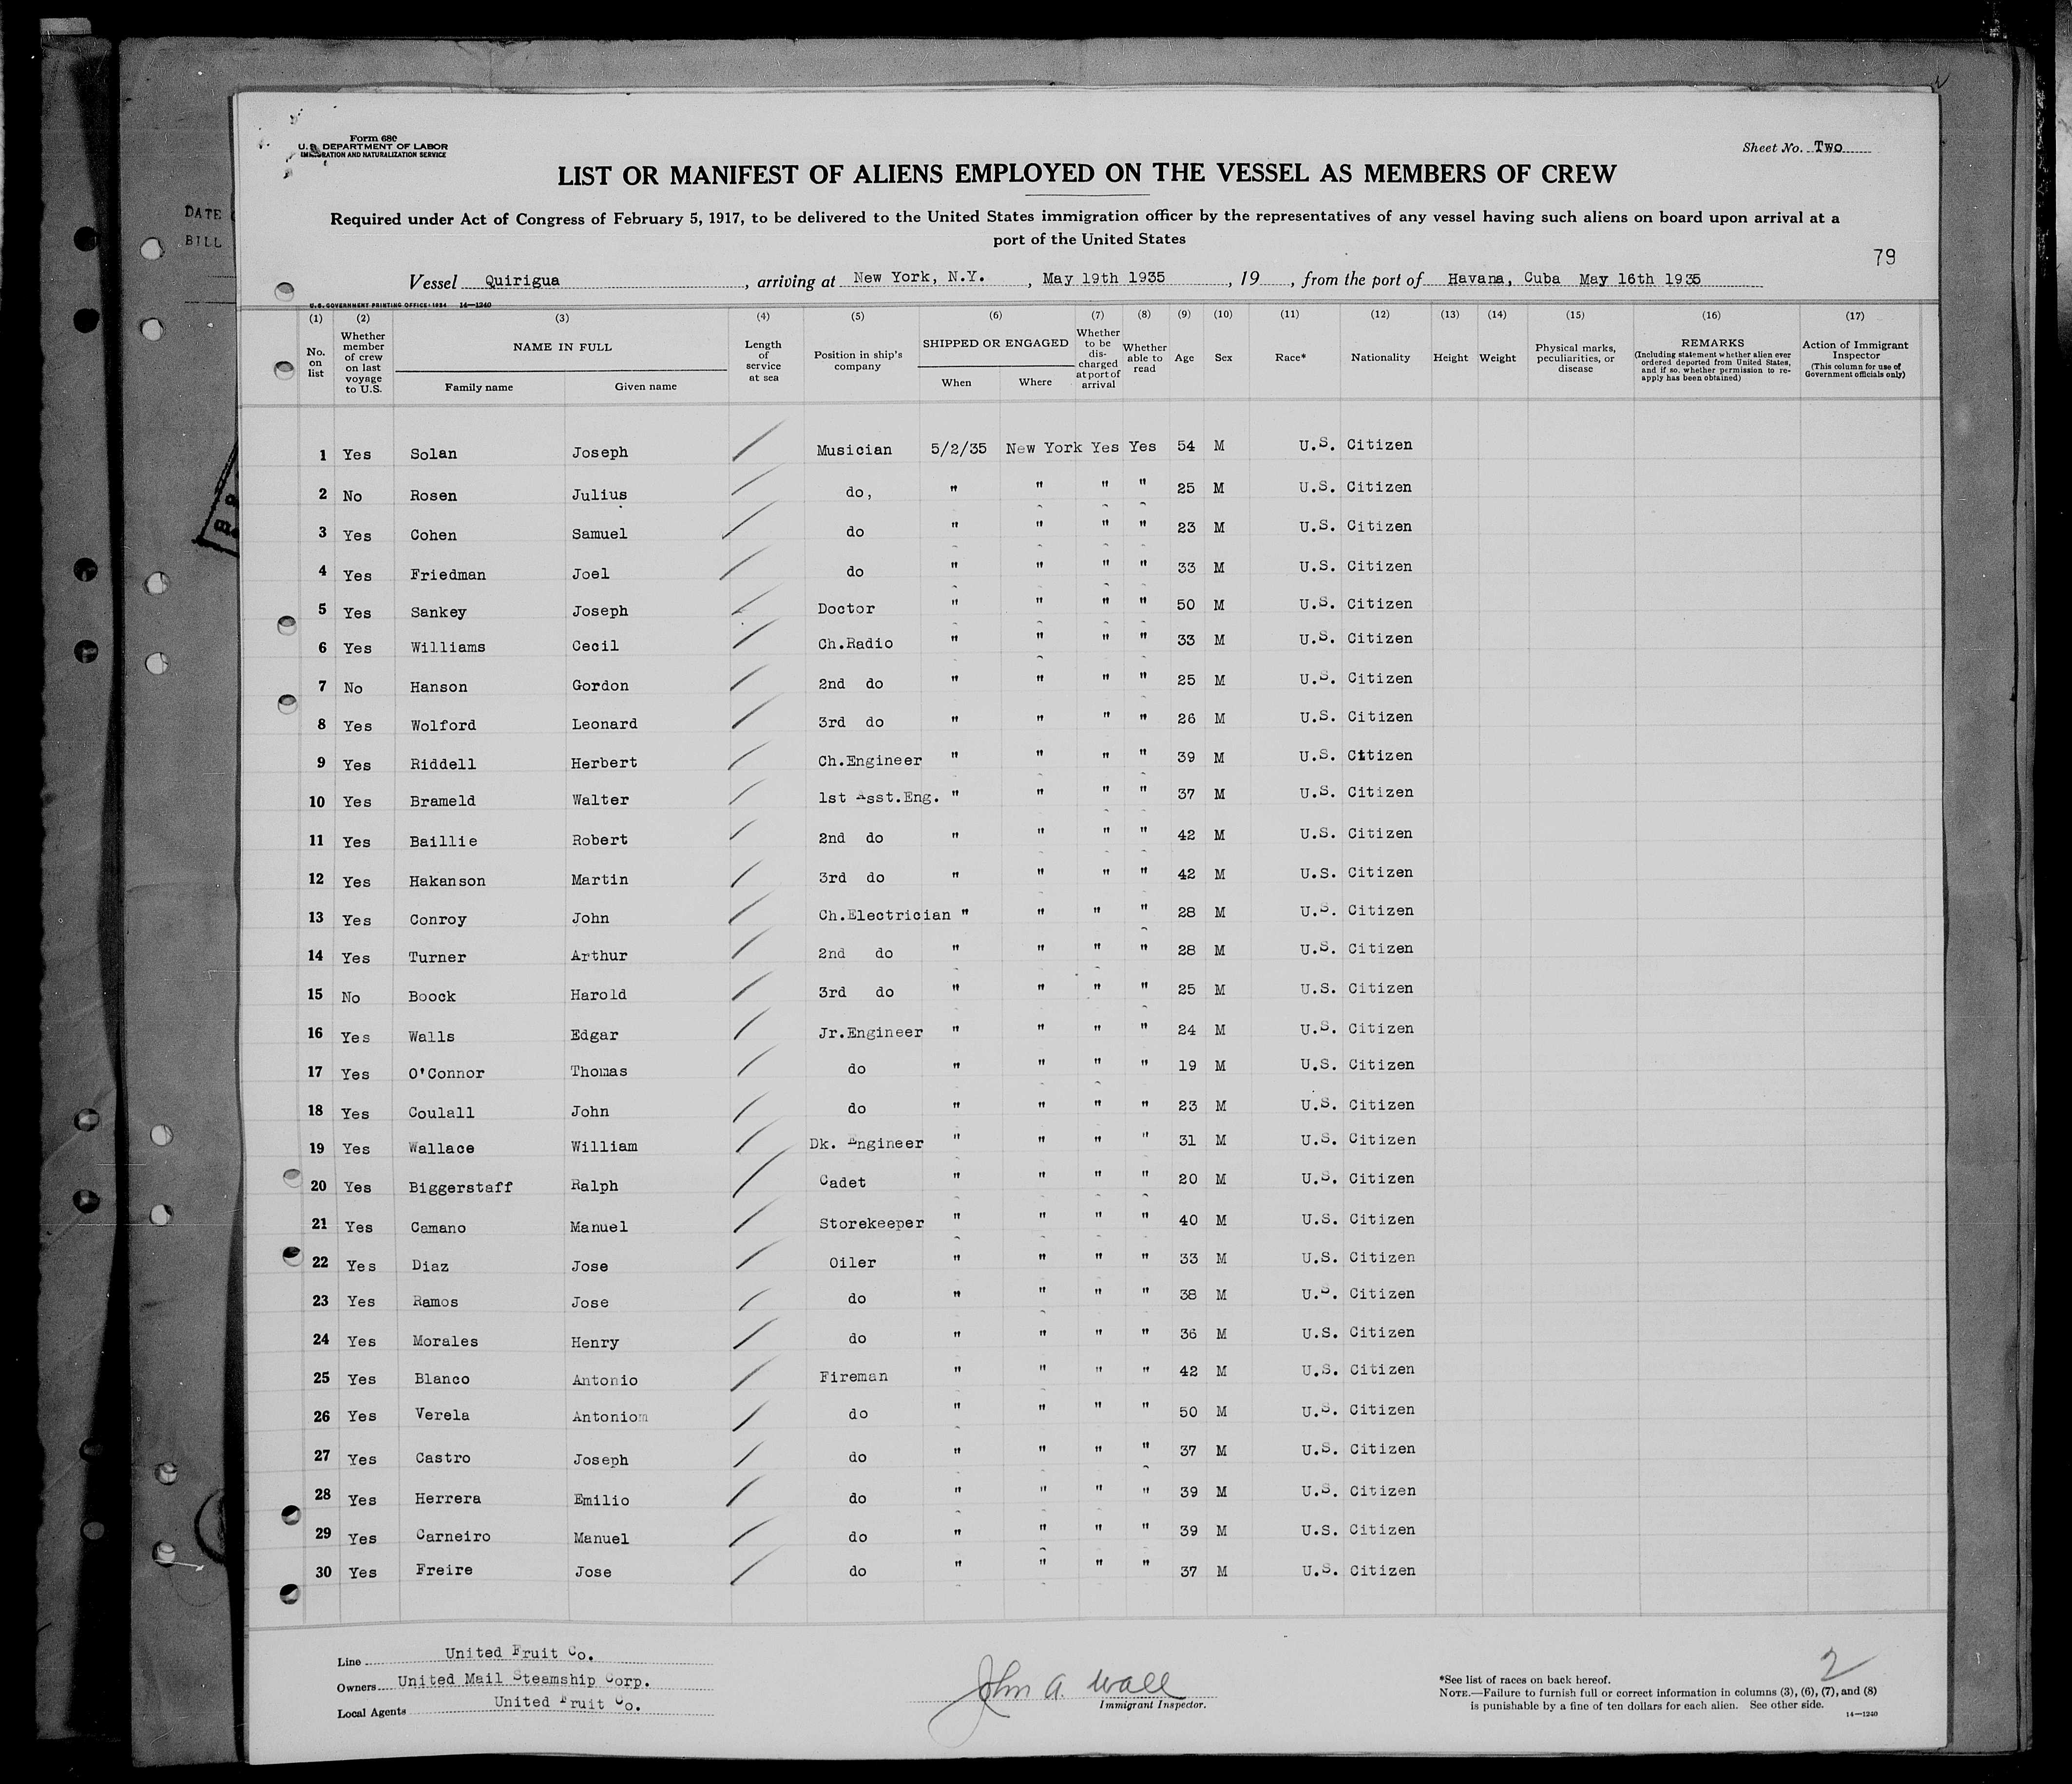 DATE
BILL
Form 680
U.S. DEPARTMENT OF LABOR
IMMIGRATION AND NATURALIZATION SERVICE
Sheet No. Two
LIST OR MANIFEST OF ALIENS EMPLOYED ON THE VESSEL AS MEMBERS OF CREW
Required under Act of Congress of February 5, 1917, to be delivered to the United States immigration officer by the representatives of any vessel having such aliens on board upon arrival at a
port of the United States
79
Vessel Quirigua, arriving at New York, N.Y., May 19th 1935, 19, from the port of Havana, Cuba May 16th 1935
U.S. GOVERNMENT PRINTING OFFICE: 1934 14—1240
(1) (2) (3) (4) (5) (6) (7) (8) (9) (10) (11) (12) (13) (14) (15) (16) (17)
No. on list
Whether member of crew on last voyage to U.S.
NAME IN FULL
Family name Given name
Length of service at sea
Position in ship's company
SHIPPED OR ENGAGED
When Where
Whether to be discharged at port of arrival
Whether able to read
Age Sex Race* Nationality Height Weight
Physical marks, peculiarities, or disease
REMARKS
(Including statement whether alien ever ordered deported from United States, and if so, whether permission to reapply has been obtained)
Action of Immigrant Inspector
(This column for use of Government officials only)
1 Yes Solan Joseph Musician 5/2/35 New York Yes Yes 54 M U.S. Citizen
2 No Rosen Julius do, " " " " 25 M U.S. Citizen
3 Yes Cohen Samuel do " " " " 23 M U.S. Citizen
4 Yes Friedman Joel do " " " " 33 M U.S. Citizen
5 Yes Sankey Joseph Doctor " " " " 50 M U.S. Citizen
6 Yes Williams Cecil Ch.Radio " " " " 33 M U.S. Citizen
7 No Hanson Gordon 2nd do " " " " 25 M U.S. Citizen
8 Yes Wolford Leonard 3rd do " " " " 26 M U.S. Citizen
9 Yes Riddell Herbert Ch.Engineer " " " " 39 M U.S. Citizen
10 Yes Brameld Walter 1st Asst.Eng. " " " " 37 M U.S. Citizen
11 Yes Baillie Robert 2nd do " " " " 42 M U.S. Citizen
12 Yes Hakanson Martin 3rd do " " " " 42 M U.S. Citizen
13 Yes Conroy John Ch.Electrician " " " " 28 M U.S. Citizen
14 Yes Turner Arthur 2nd do " " " " 28 M U.S. Citizen
15 No Boock Harold 3rd do " " " " 25 M U.S. Citizen
16 Yes Walls Edgar Jr.Engineer " " " " 24 M U.S. Citizen
17 Yes O'Connor Thomas do " " " " 19 M U.S. Citizen
18 Yes Coulall John do " " " " 23 M U.S. Citizen
19 Yes Wallace William Dk. Engineer " " " " 31 M U.S. Citizen
20 Yes Biggerstaff Ralph Cadet " " " " 20 M U.S. Citizen
21 Yes Camano Manuel Storekeeper " " " " 40 M U.S. Citizen
22 Yes Diaz Jose Oiler " " " " 33 M U.S. Citizen
23 Yes Ramos Jose do " " " " 38 M U.S. Citizen
24 Yes Morales Henry do " " " " 36 M U.S. Citizen
25 Yes Blanco Antonio Fireman " " " " 42 M U.S. Citizen
26 Yes Verela Antoniom do " " " " 50 M U.S. Citizen
27 Yes Castro Joseph do " " " " 37 M U.S. Citizen
28 Yes Herrera Emilio do " " " " 39 M U.S. Citizen
29 Yes Carneiro Manuel do " " " " 39 M U.S. Citizen
30 Yes Freire Jose do " " " " 37 M U.S. Citizen
Line United Fruit Co.
Owners United Mail Steamship Corp.
Local Agents United Fruit Co.
John A. Wall
Immigrant Inspector.
2
*See list of races on back hereof.
NOTE.—Failure to furnish full or correct information in columns (3), (6), (7), and (8)
is punishable by a fine of ten dollars for each alien. See other side.
14—1240